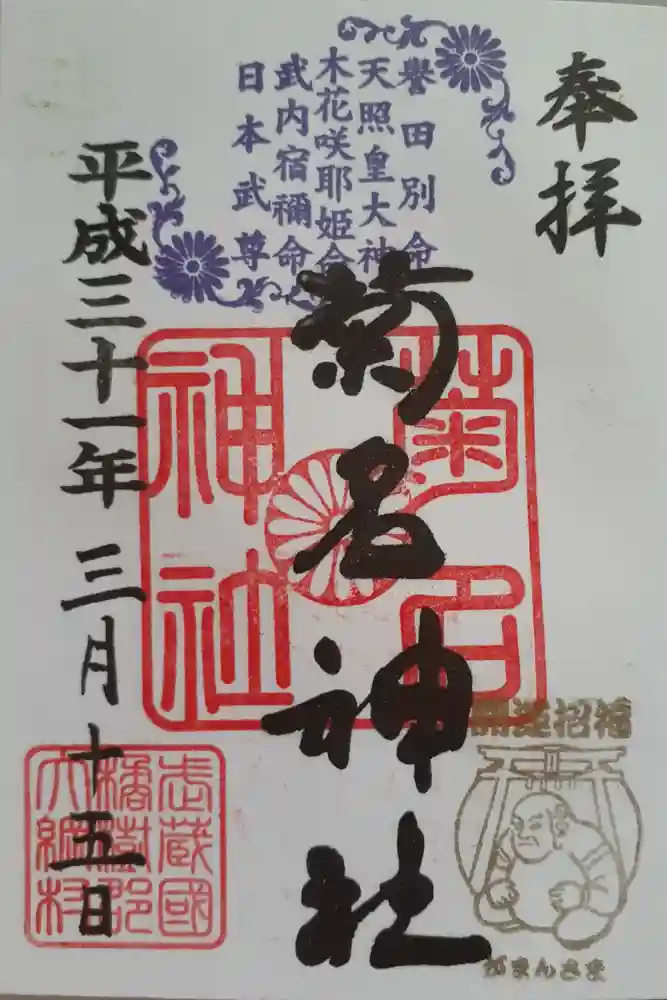 奉拝
譽田別命
天照皇大神
木花咲耶姫命
武内宿禰命
日本武尊
菊名神社
菊名
神社
平成三十一年三月十五日
武蔵國
橘樹郡
大綱村
開運招福
がまんさま